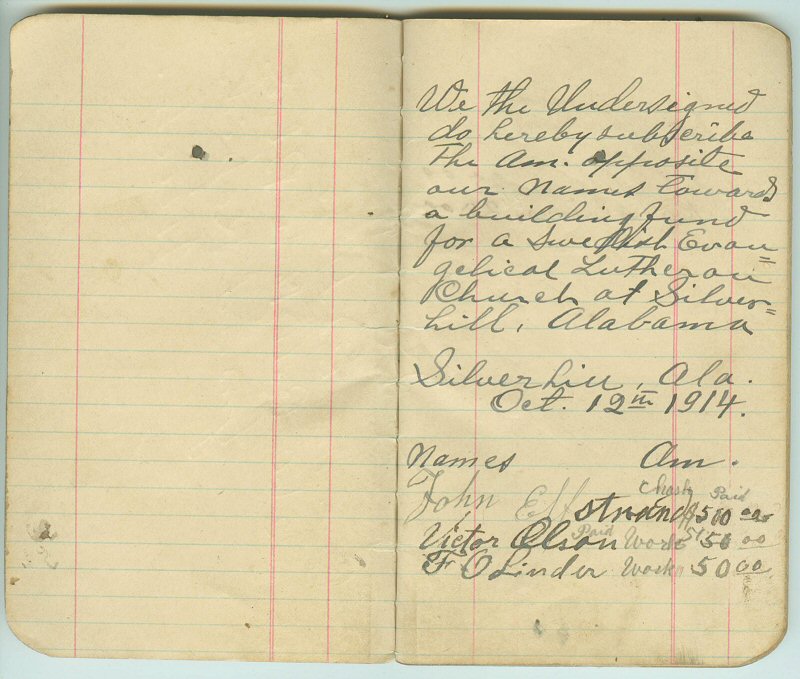 We the Undersigned
do hereby subscribe
the Am. opposite
our Names towards
a building fund
for a Swedish Evan=
gelical Lutheran
Church at Silver=
hill, Alabama
Silverhill, Ala.
Oct. 12th 1914.
Names Am.
Paid
John Elfstrand 00
Paid
Victor Olson Work 50 00
F O Linder Work 50 00